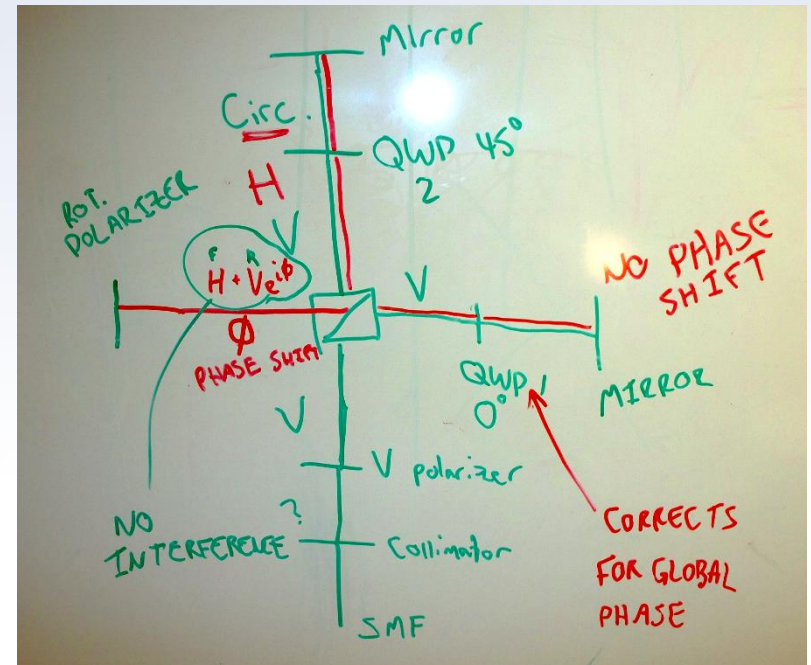 Mirror
Circ.
QWP 45°
2
H
V
ROT.
POLARIZER
F R
H + Ve^iφ
V
NO PHASE
SHIFT
Ø
PHASE SHIFT
QWP 1
0°
MIRROR
V
V polarizer
NO
INTERFERENCE ?
Collimator
SMF
CORRECTS
FOR GLOBAL
PHASE